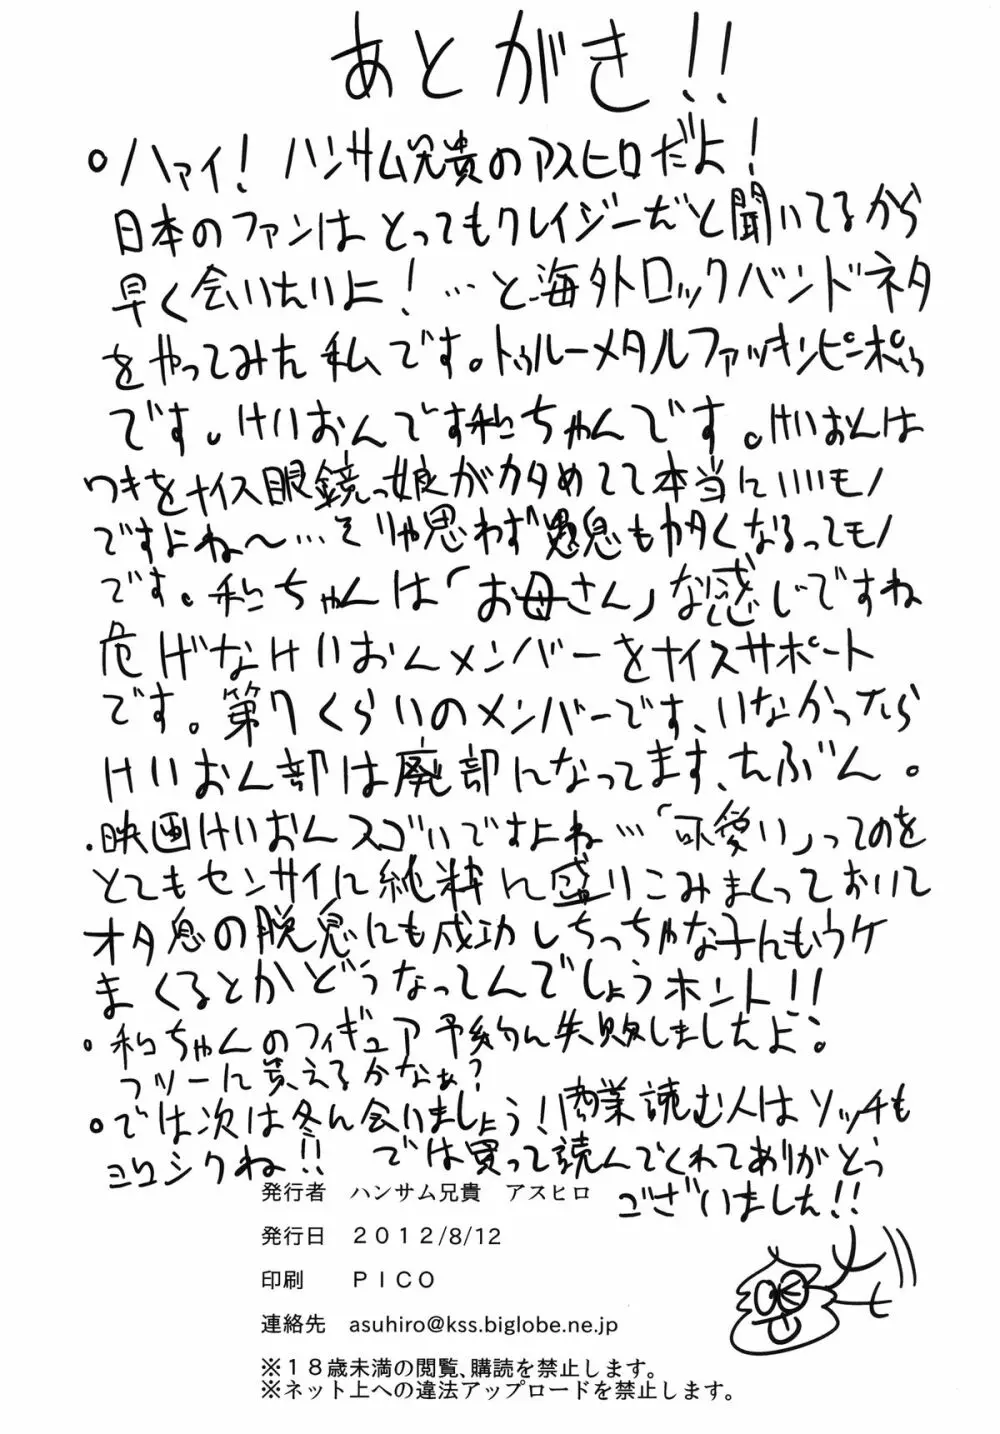 あとがき!!
○ハァイ! ハンサム兄貴のアスヒロだよ!
日本のファンはとってもクレイジーだと聞いてるから
早く会いたいよ!…と海外ロックバンドネタ
をやってみた私です。トゥルーメタルファッキンピーポゥ
です。けいおんです和ちゃんです。けいおんは
ワキをナイス眼鏡っ娘がカタめてて本当にいいモノ
ですよね〜…そりゃ思わず愚息もカタくなるってモノ
です。和ちゃんは「お母さん」な感じですね
危げなけいおんメンバーをナイスサポート
です。第7くらいのメンバーです、いなかったら
けいおん部は廃部になってます、たぶん。
・映画けいおんスゴいですよね…「可愛い」ってのを
とてもセンサイに純粋に盛りこみまくっておいて
オタ息の脱臭にも成功しちっちゃな子にもウケ
まくるとかどうなってんでしょうホント!!
○和ちゃんのフィギュア予約に失敗しましたよ。
フツーに買えるかなぁ?
○では次は冬に会いましょう!商業読む人はソッチも
ヨロシクね!! では買って読んでくれてありがとう
ございました!!
発行者 ハンサム兄貴 アスヒロ
発行日 2012/8/12
印刷 PICO
連絡先 asuhiro@kss.biglobe.ne.jp
※18歳未満の閲覧、購読を禁止します。
※ネット上への違法アップロードを禁止します。